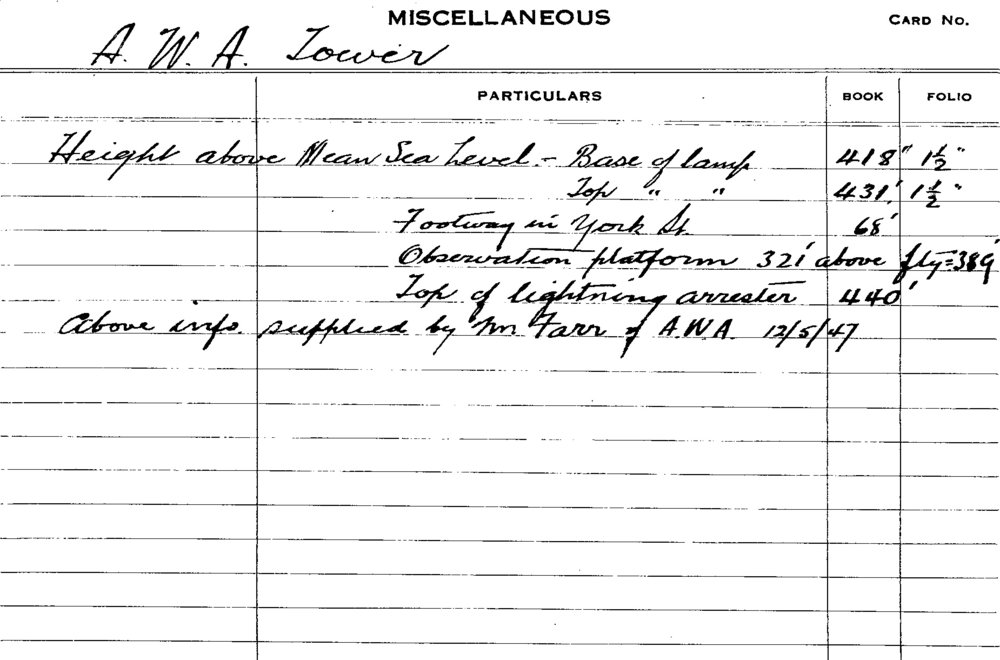 MISCELLANEOUS CARD NO.
A. W. A. Tower
PARTICULARS BOOK FOLIO
Height above Mean Sea Level - Base of lamp 418" 1½"
Top " " 431' 1½"
Footway in York St. 68'
Observation platform 321' above fty = 389'
Top of lightning arrester 440'
Above info. supplied by Mr Farr of A.W.A. 12/5/47